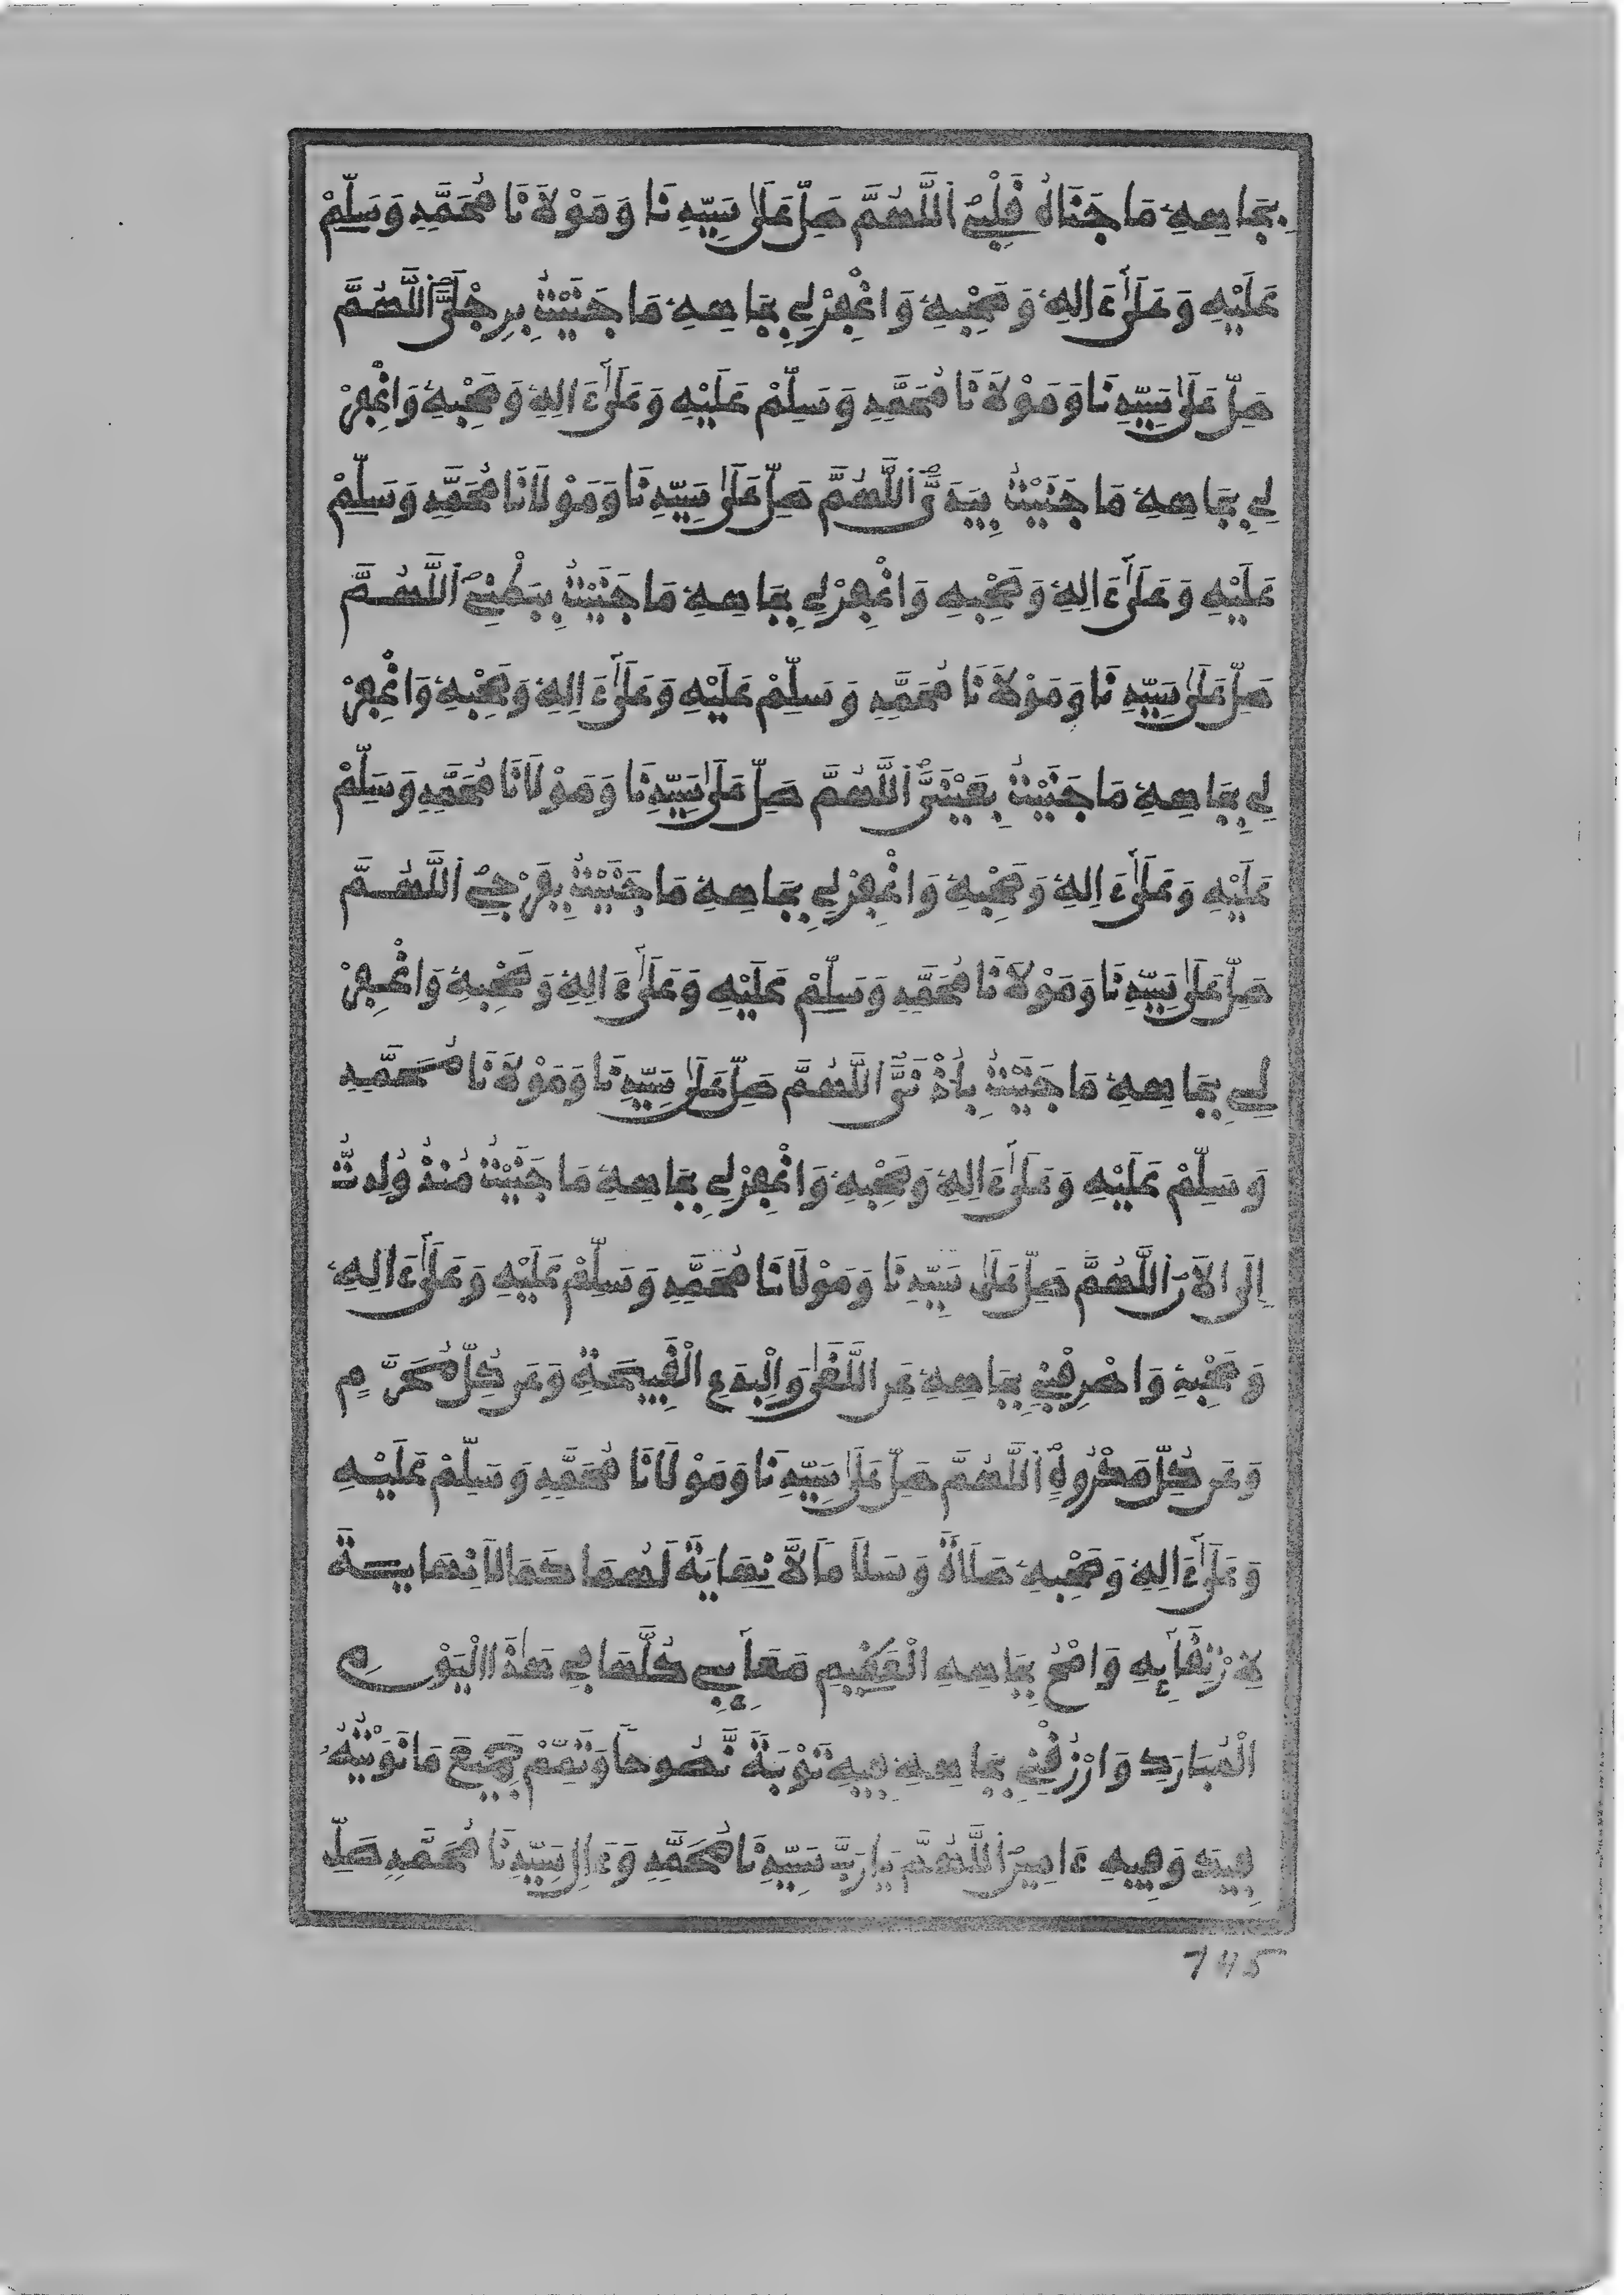 بِجَاهِهِ مَا جَنَاهُ قَلْبِي اَللَّهُمَّ صَلِّ عَلَى سَيِّدِنَا وَمَوْلَانَا مُحَمَّدٍ وَسَلِّمْ
عَلَيْهِ وَعَلَىٰ ءَالِهِ وَصَحْبِهِ وَاغْفِرْ لِي بِجَاهِهِ مَا جَنَيْتُ بِرِجْلَيَّ اَللَّهُمَّ
صَلِّ عَلَى سَيِّدِنَا وَمَوْلَانَا مُحَمَّدٍ وَسَلِّمْ عَلَيْهِ وَعَلَىٰ ءَالِهِ وَصَحْبِهِ وَاغْفِرْ
لِي بِجَاهِهِ مَا جَنَيْتُ بِيَدَيَّ اَللَّهُمَّ صَلِّ عَلَى سَيِّدِنَا وَمَوْلَانَا مُحَمَّدٍ وَسَلِّمْ
عَلَيْهِ وَعَلَىٰ ءَالِهِ وَصَحْبِهِ وَاغْفِرْ لِي بِجَاهِهِ مَا جَنَيْتُ بِبَطْنِي اَللَّهُمَّ
صَلِّ عَلَى سَيِّدِنَا وَمَوْلَانَا مُحَمَّدٍ وَسَلِّمْ عَلَيْهِ وَعَلَىٰ ءَالِهِ وَصَحْبِهِ وَاغْفِرْ
لِي بِجَاهِهِ مَا جَنَيْتُ بِعَيْنَيَّ اَللَّهُمَّ صَلِّ عَلَى سَيِّدِنَا وَمَوْلَانَا مُحَمَّدٍ وَسَلِّمْ
عَلَيْهِ وَعَلَىٰ ءَالِهِ وَصَحْبِهِ وَاغْفِرْ لِي بِجَاهِهِ مَا جَنَيْتُ بِفَرْجِي اَللَّهُمَّ
صَلِّ عَلَى سَيِّدِنَا وَمَوْلَانَا مُحَمَّدٍ وَسَلِّمْ عَلَيْهِ وَعَلَىٰ ءَالِهِ وَصَحْبِهِ وَاغْفِرْ
لِي بِجَاهِهِ مَا جَنَيْتُ بِأُذْنَيَّ اَللَّهُمَّ صَلِّ عَلَى سَيِّدِنَا وَمَوْلَانَا مُحَمَّدٍ
وَسَلِّمْ عَلَيْهِ وَعَلَىٰ ءَالِهِ وَصَحْبِهِ وَاغْفِرْ لِي بِجَاهِهِ مَا جَنَيْتُ مُنذُ وُلِدتُّ
إِلَى الْآنَ اَللَّهُمَّ صَلِّ عَلَى سَيِّدِنَا وَمَوْلَانَا مُحَمَّدٍ وَسَلِّمْ عَلَيْهِ وَعَلَىٰ ءَالِهِ
وَصَحْبِهِ وَاصْرِفْنِي بِجَاهِهِ عَنِ اللَّظَى وَالْبِدَعِ الْقَبِيحَةِ وَعَن كُلِّ مُحَرَّمٍ
وَعَن كُلِّ مَكْرُوهٍ اَللَّهُمَّ صَلِّ عَلَى سَيِّدِنَا وَمَوْلَانَا مُحَمَّدٍ وَسَلِّمْ عَلَيْهِ
وَعَلَىٰ ءَالِهِ وَصَحْبِهِ صَلَاةً وَسَلَاماً لَّا نِهَايَةَ لَهُمَا كَمَا لَا نِهَايَةَ
لِارْتِقَائِهِ وَامْحُ بِجَاهِهِ الْعَظِيمِ مَعَائِبِي كُلَّهَا فِي هَذَا الْيَوْمِ
الْمُبَارَكِ وَارْزُقْنِي بِجَاهِهِ فِيهِ تَوْبَةً نَّصُوحاً وَتَمِّمْ جَمِيعَ مَا نَوَيْتُهُ
فِيكَ وَفِيهِ ءَامِينَ اَللَّهُمَّ يَا رَبَّ سَيِّدِنَا مُحَمَّدٍ وَءَالِ سَيِّدِنَا مُحَمَّدٍ صَلِّ
745